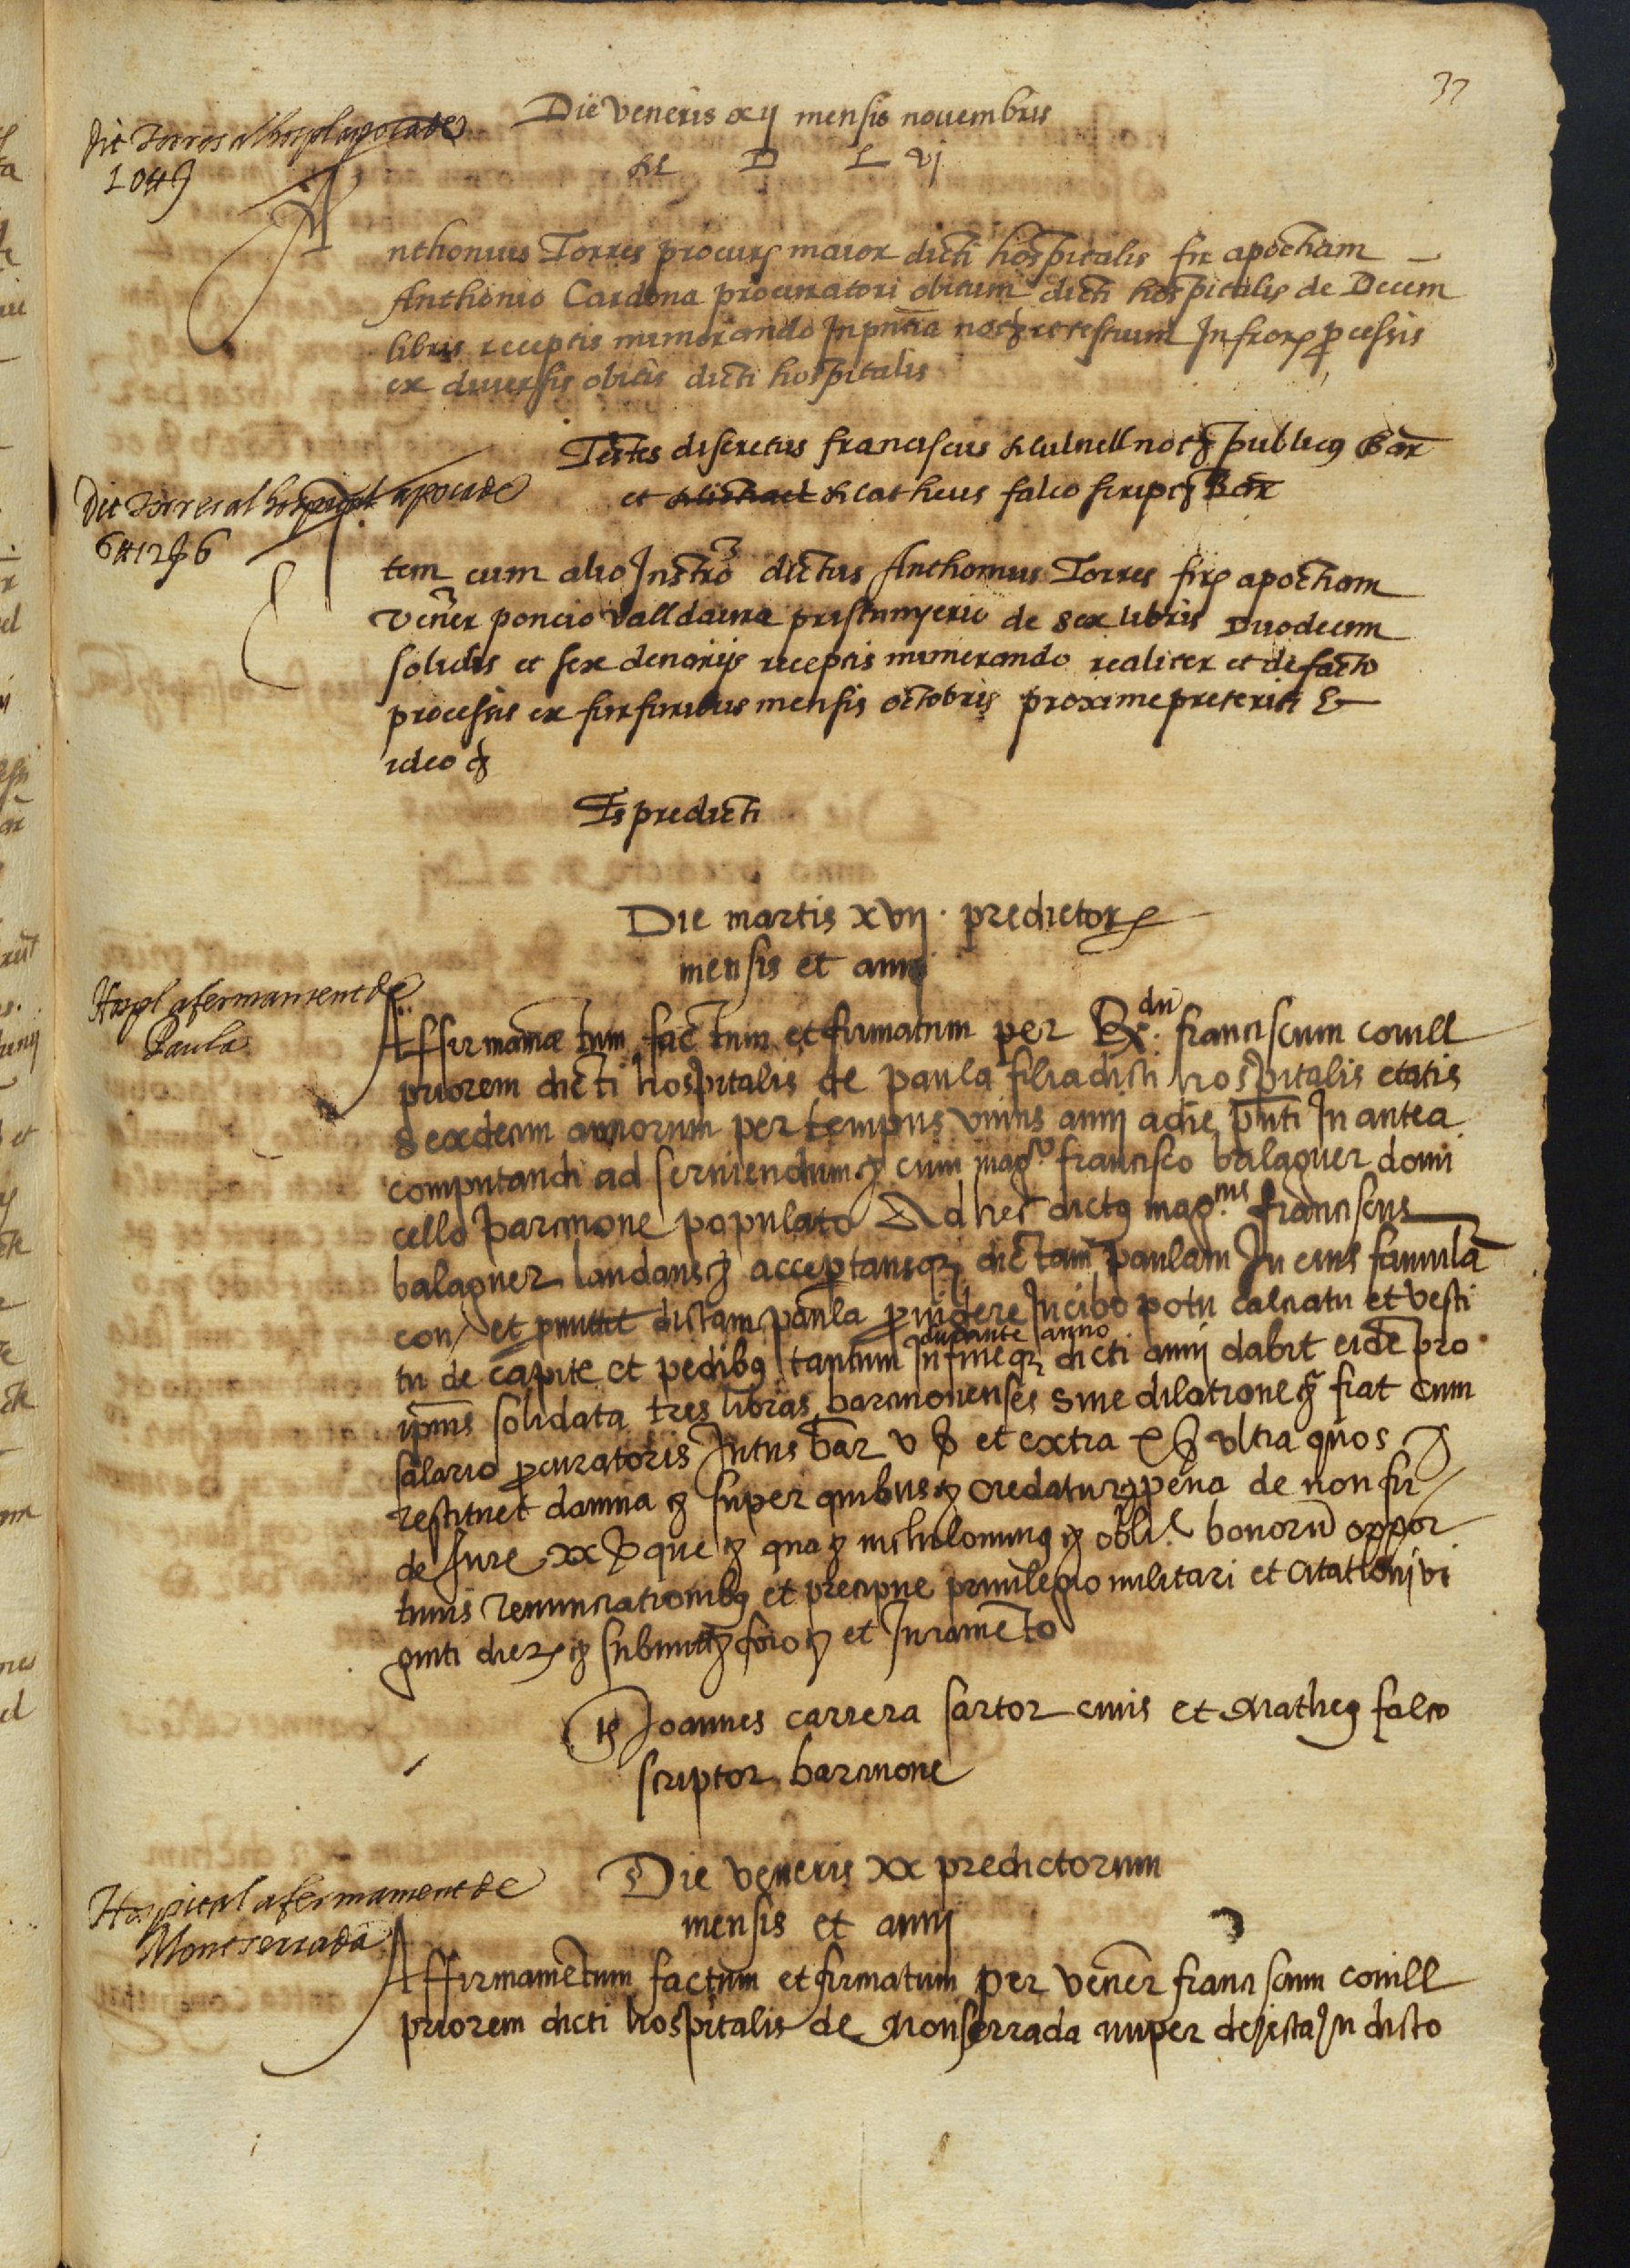 37
Die veneris xij mensis nouembris
M D L vj
Dit Torres al hospl apoca de
10 ll ƺ
Anthonius Torres procurꝝ maior dicti hospitalis fir apocham
Anthonio Cardona procuratori obituum dicti hospitalis de Decem
libris receptis numerando In pntia notꝫ et testium Infrorꝝ ꝓcessis
ex diuersis obitis dicti hospitalis
Testes discretus franciscus Mulnell notꝫ publicꝯ Bar
et Michael Matheus falco scriptꝫ Bar
Dit Torres al hospital apoca de
6 ll 12 ß 6
Item cum alio Instro dictus Anthonius Torres firꝝ apocham
Vener poncio Valldaura de sex libris Duodecim
solidis et sex denarijs receptis numerando realiter et de facto
processis ex furfuribus mensis octobris proxime preteriti &
ideo ꝫ
Ts predicti
Die martis xvij predictorꝝ
mensis et anni
Hospl afermament de
Paula
Affirmamētum factum et firmatum per Rdu franciscum conill
priorem dicti hospitalis de paula filia dicti hospitalis etatis
sexdecim annorum per tempus vnius anni a die pnti In antea
computandi ad seruiendum ꝫ cum mago francisco balaguer domi
cello barcinone populato Ad hec dictꝯ magcus franciscus
balaguer laudans ꝫ acceptansqꝫ dictam paulam In eius famulā
con et pmittit dictam paula ꝓuidere In cibo potu calciatu et vesti
tu de capite et pedibꝯ tantum durante anno In fineqꝫ dicti anni dabit eidē pro
ipius solidata tres libras barcinonenses sine dilatione ꝫ fiat cum
salario ꝓcuratoris Intus bar v ß et extra x ß vltra quos
restituet damna ꝫ super quibus ꝫ credatur ꝫ pena de non fir
de Jure xx ß que ꝫ qua ꝫ nichilominꝯ ꝫ obli bonorū oppor
tunis renunciationibꝯ et precipue priuilegio militari et citationi vi
ginti dierꝝ ꝫ submitt ꝫ foro ꝫ et Juramēto
Ts Joannes carrera sartor ciuis et Matheꝯ falco
scriptor barcinone
Die veneris xx predictorum
mensis et anni
Hospital afermament de
Montserrada
Affirmamētum factum et firmatum per vener franciscum conill
priorem dicti hospitalis de Monserrada nuper dejecta In dicto